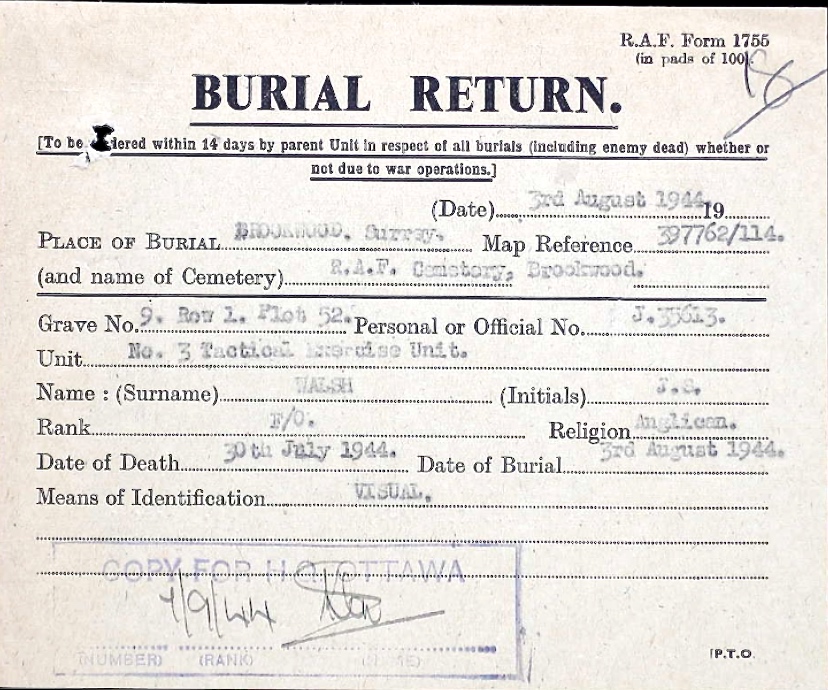 R.A.F. Form 1755
(in pads of 100).
16
BURIAL RETURN.
[To be dered within 14 days by parent Unit in respect of all burials (including enemy dead) whether or
not due to war operations.]
(Date) 3rd August 1944. 19
PLACE OF BURIAL BROOKWOOD. Surrey. Map Reference 397762/114.
(and name of Cemetery) R.A.F. Cemetery, Brookwood.
Grave No. 9. Row 1. Plot 52. Personal or Official No. J.35613.
Unit No. 3 Tactical Exercise Unit.
Name : (Surname) WALSH (Initials) J.S.
Rank F/O. Religion Anglican.
Date of Death 30th July 1944. Date of Burial 3rd August 1944.
Means of Identification VISUAL.
COPY FOR H.Q. OTTAWA
7/9/44
(NUMBER) (RANK) (NAME)
P.T.O.